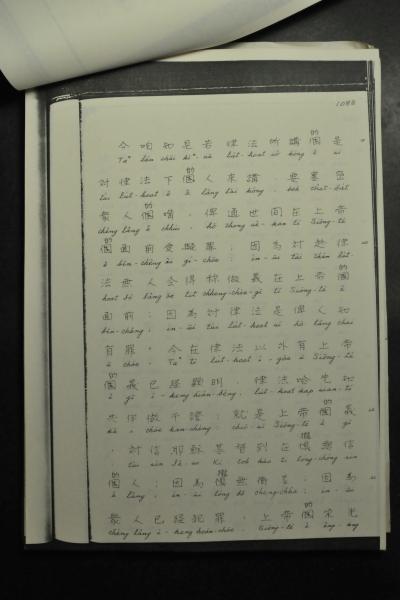 1088
今咱知是若律法所講個是
Taⁿ lán chai kìⁿ-nā lu̍t-hoat só͘ kóng ê sī
對律法下個人來講，要塞密
tùi lu̍t-hoat ē ê lâng lâi kóng, beh that-ba̍t
衆人個嘴，俾通世間在上帝
chèng lâng ê chhùi, hō͘ thong sè-kan tī Siōng-tè
個面前受擬罪；因為對趁律
ê bīn-chêng
法無人會得稱做義在上帝個
hoat bô lâng ōe tit chheng-chòe-gī tī Siōng-tè ê
面前；因為對律法是俾人知
bīn-chêng; in-ūi tùi lu̍t-hoat sī hō͘ lâng chai
有罪。今在律法以外有上帝
ū chōe. Taⁿ tī lu̍t-hoat í-gōa ū Siōng-tè
個義已經顯明，律法哈先知
ê gī í-keng hián-bêng, lu̍t-hoat kap sian-ti
共伊做干證；就是上帝個義
kā i chòe kan-chèng; chiū-sī Siōng-tè ê gī
，對信耶穌基督到在攏總信
tùi sìn Iâ-so͘ Ki-tok kàu tī lóng-chóng sìn
個人；因為攏無
ê lâng; in-ūi lóng bô
因為
in-ūi
衆人已經犯罪，上帝個榮光
chèng lâng í-keng hoān-chōe, Siōng-tè ê êng-kng